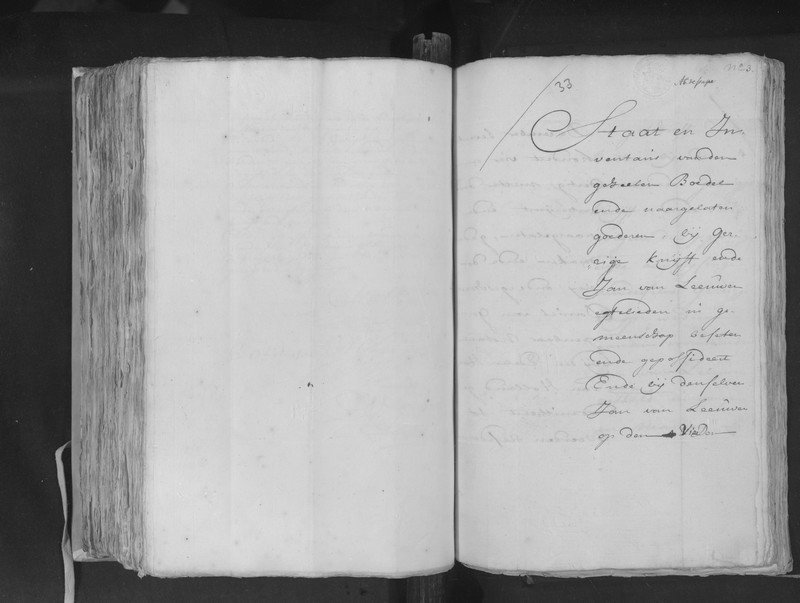 33
Staat en In-
ventaris van den
geheelen Boedel
ende naargelaten
goederen, bij Ger-
rigie Knijff ende
Jan van Leeuwen
egtelieden in ge-
meenschap beseten
ende gepossideert
Ende bij denselven
Jan van Leeuwen
op den